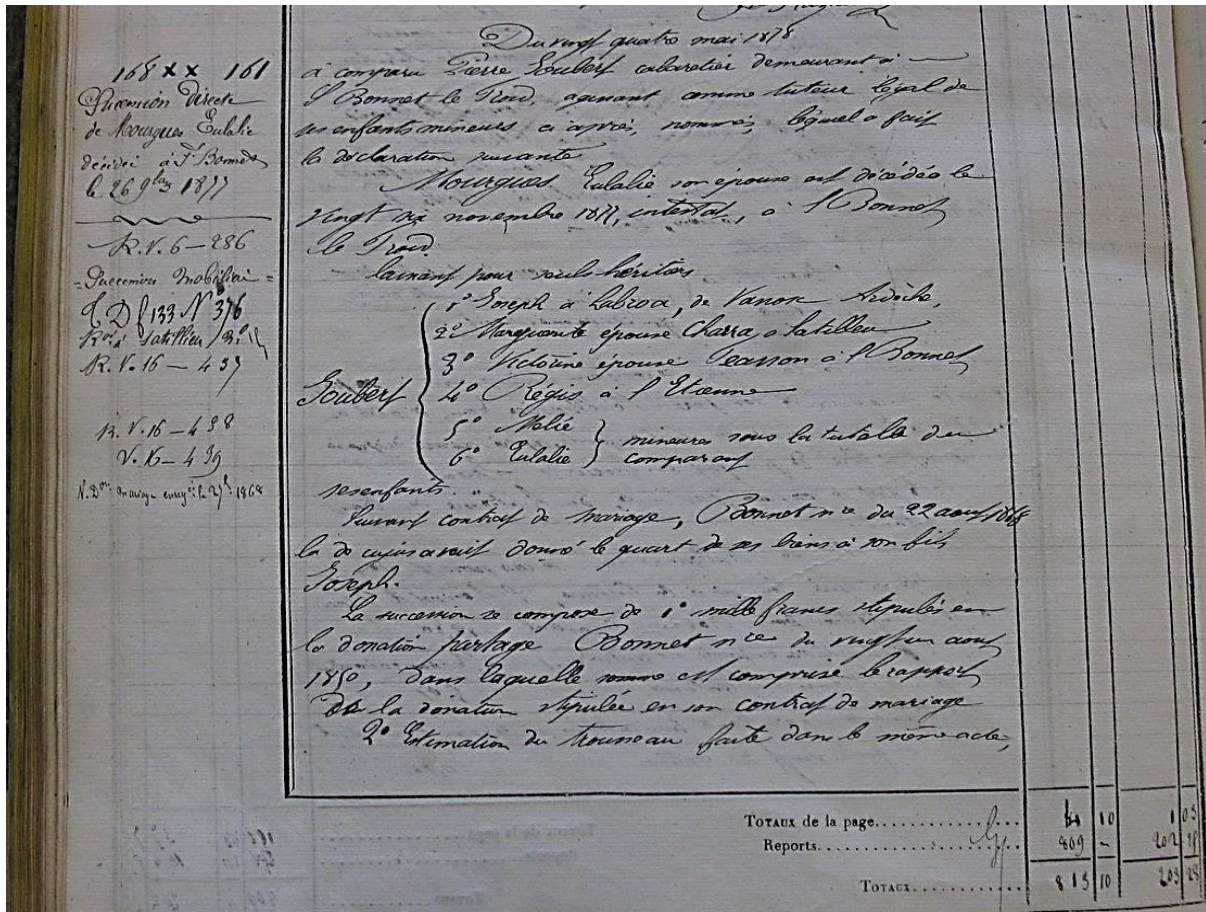 Du vingt quatre mai 1878
168 x x 161
Succession Directe
de Mourgues Eulalie
décédée à St Bonnet
le 26 9bre 1877
R.V. 6 — 286
= Succession Mobilière =
T D f 133 N° 376
Satillieu
R.V. 16 — 437
R.V. 16 — 438
V. 16 — 439
mariage 1868
à comparu Pierre Soubert cabaretier demeurant à
St Bonnet le Froid, agissant comme tuteur légal de
ses enfants mineurs ci après, nommés, lequel a fait
la déclaration suivante
Mourgues Eulalie son épouse est décédée le
vingt six novembre 1877, intestat, à St Bonnet
le Froid.
laissant pour seuls héritiers
1° Joseph à Labroa, de Vanosc Ardèche,
2° Marguerite épouse Charra, à Satilleu
3° Victorine épouse à St Bonnet
Soubert 4° Régis à St Etienne
5° Mélie
6° Eulalie } mineures sous la tutelle du
comparant
ses enfants.
Suivant contrat de mariage, Bonnet nre du 22 aout 1868
la de cujus avait donné le quart de ses biens à son fils
Joseph.
La succession se compose de 1° mille francs stipulés en
la donation partage Bonnet nre du vingt un aout
1850, dans laquelle somme est comprise le rapport
de la donation stipulée en son contrat de mariage
2° Estimation du trousseau faite dans le même acte,
TOTAUX de la page 10 1 03
Reports 809 - 202
TOTAUX 813 10 203 28